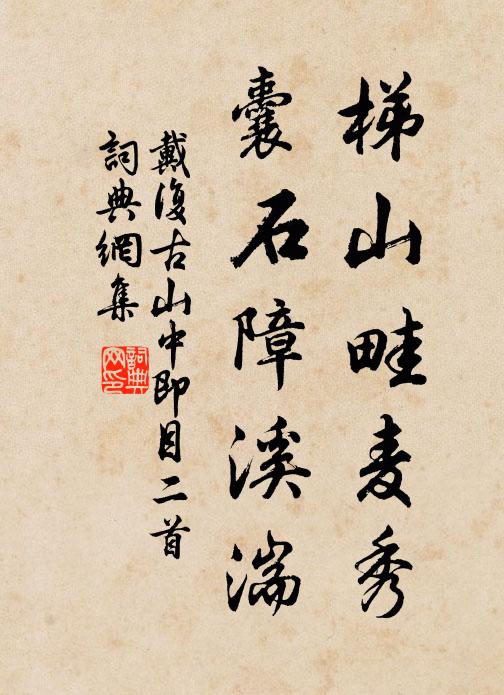 梯山畦麦秀
囊石障溪湍
戴復古山中即目二首
詞典網集
詞典网印